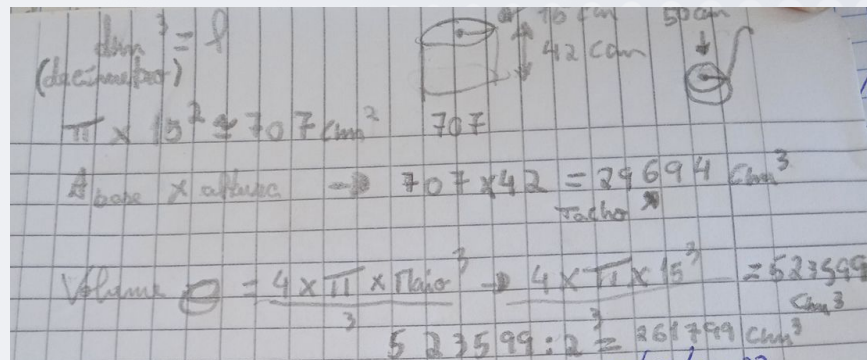 dm³ = l
(decímetro)
15 cm
42 cm
50cm
π × 15² ≃ 707 cm² 707
A base × altura → 707 × 42 = 29694 cm³
Tacho
Volume = 4 × π × raio³ / 3 → 4 × π × 15³ / 3 = 523599 cm³
523599 : 2 = 261799 cm³